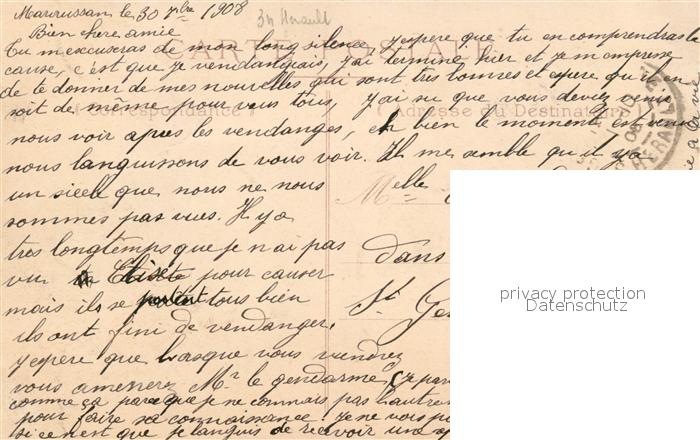 Maureussan le 30 7bre 1908
34 Herault
Bien chere amie
CARTE POSTALE
Tu m'excuseras de mon long silence, j'espere que tu en comprendras la
cause, c'est que je vendangeais, j'ai terminé hier et je m'empresse
de te donner de mes nouvelles qui sont tres bonnes et espere qu'il en
soit de même pour vous tous, j'ai su que vous deviez venir
Correspondance
Adresse du Destinataire
nous voir apres les vendanges, eh bien le moment est venu
nous languissons de vous voir. Il me semble qu'il y a
un siecle que nous ne nous
sommes pas vues. Il y a
tres longtemps que je n'ai pas
vu Elisée pour causer
mais ils se portent tous bien
ils ont fini de vendanger.
j'espere que lorsque vous viendrez
vous amenerez Mr le gendarme,
comme ça parceque je ne connais pas
pour faire sa connaissance je ne
si ce n'est que je languis de recevoir une
Melle
dans
St Ge
privacy protection
Datenschutz